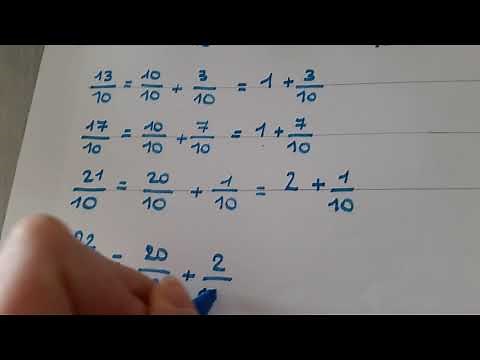 13/10 = 10/10 + 3/10 = 1 + 3/10
17/10 = 10/10 + 7/10 = 1 + 7/10
21/10 = 20/10 + 1/10 = 2 + 1/10
22 = 20 + 2